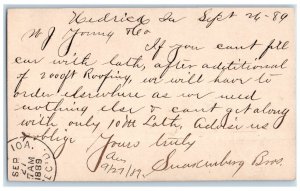 Hedrick Ia Sept 26-89
W J Young & Co
If you cant fill
car with lath, after additional
of 2000ft Roofing, we will have to
order elsewhere as we need
nothing else & cant get along
with only 10M Lath, Advise us
& oblige
Yours truly
Ans
9/27/89
Swarenberg Bros.
IOA.
SEP
7AM
1889
REC'D.